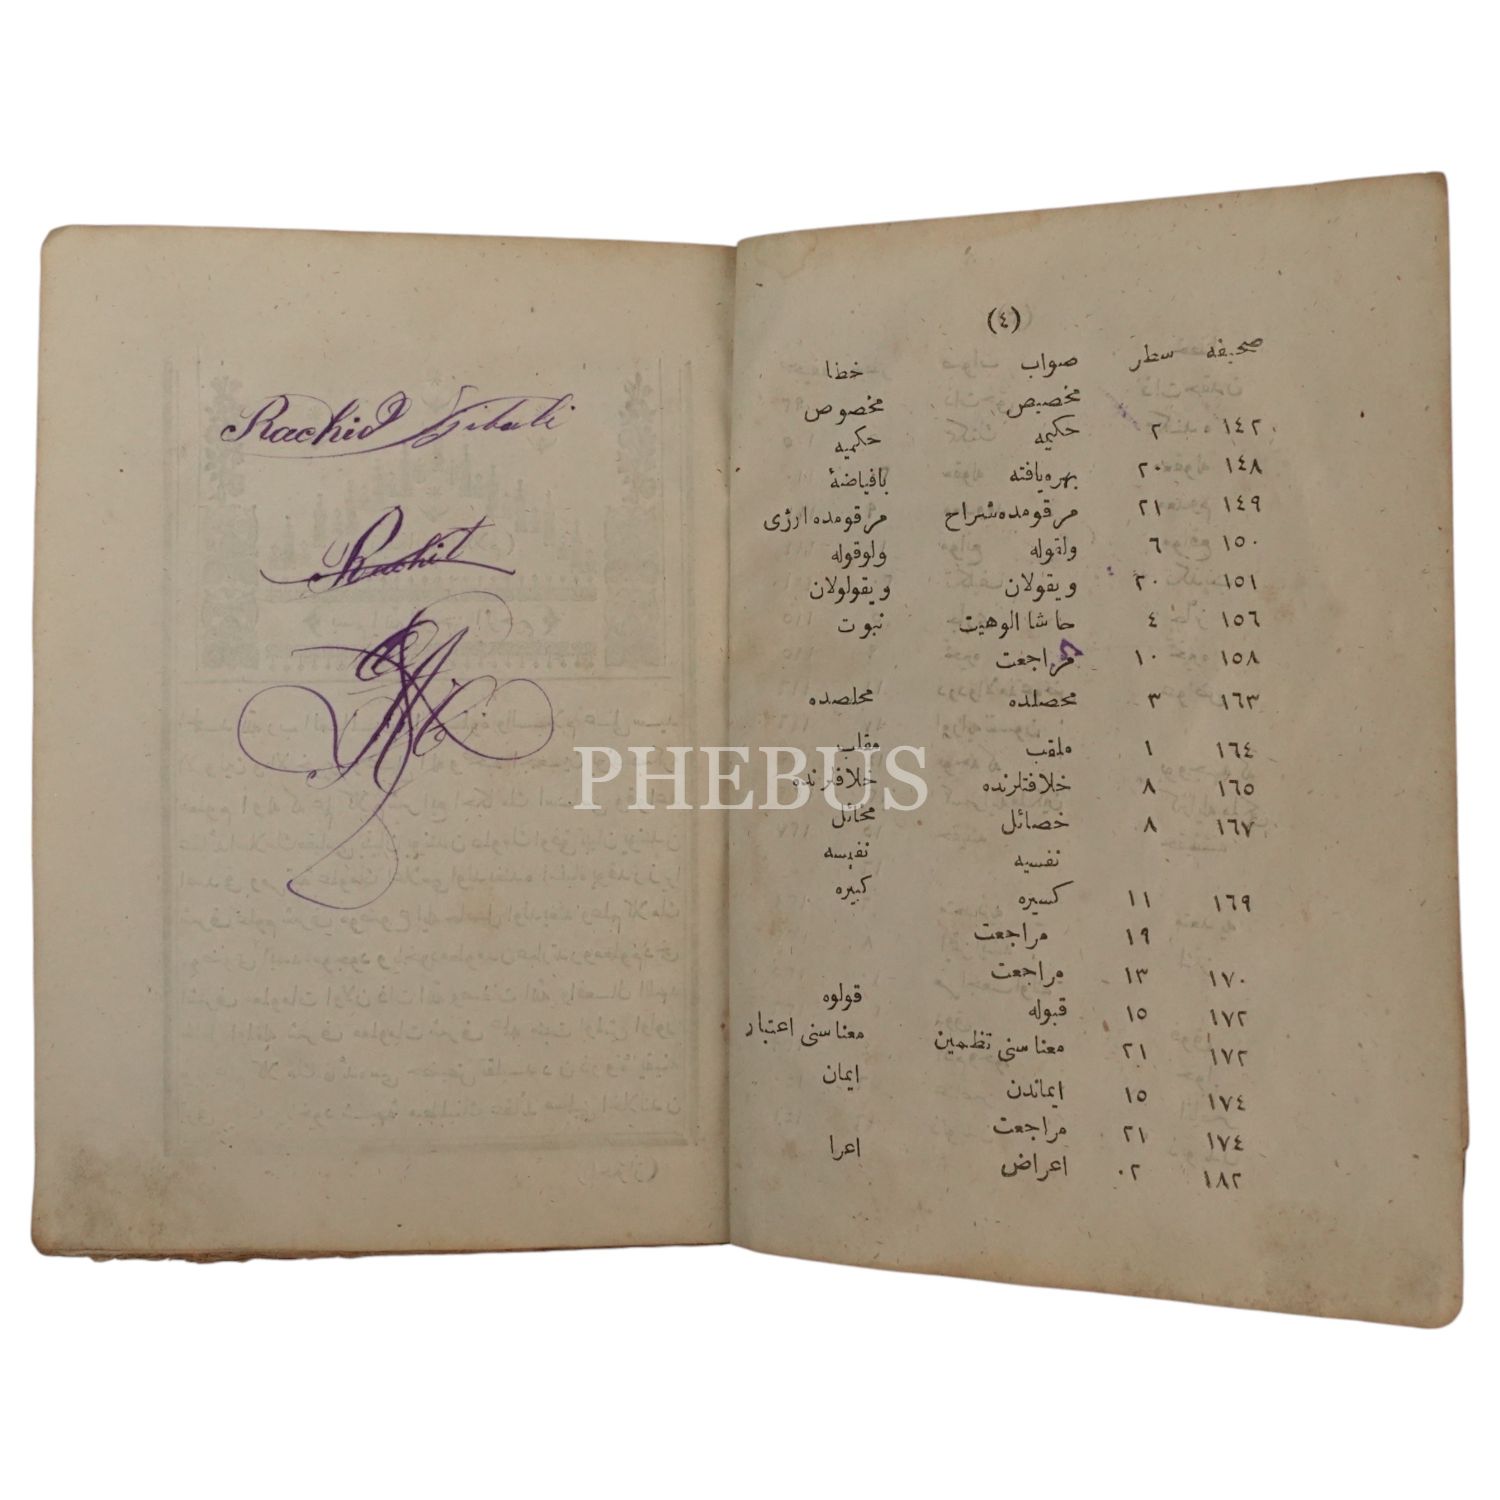 Rachid Djibali
Rachit
PHEBUS
(٤)
صحيفه سطر صواب خطا
١٤٢ ٢ تخصيص مخصوص
حكيمه حكميه
١٤٨ ٢٠ بهره‌يافته بافياضهٔ
١٤٩ ٢١ مرقومده‌شراح مرقومده ارزى
١٥٠ ٦ ولقوله ولوقوله
١٥١ ٢٠ ويقولان ويقولولان
١٥٦ ٤ حاشا الوهيت نبوت
١٥٨ ١٠ مراجعت
١٦٣ ٣ محصلده محلصده
١٦٤ ١ ملقب مقلب
١٦٥ ٨ خلافتلرنده خلافترنده
١٦٧ ٨ خصائل مخائل
نفسيه نفيسه
١٦٩ ١١ كسيره كبيره
١٩ مراجعت
١٧٠ ١٣ مراجعت
١٧٢ ١٥ قبوله قولوه
١٧٢ ٢١ معناسنى تظمين معناسنى اعتبار
١٧٤ ١٥ ايماندن ايمان
١٧٤ ٢١ مراجعت
١٨٢ ٠٢ اعراض اعرا